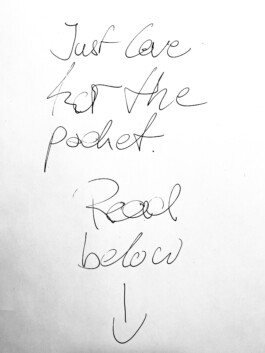 Just Love
for the
pocket.
Read
below